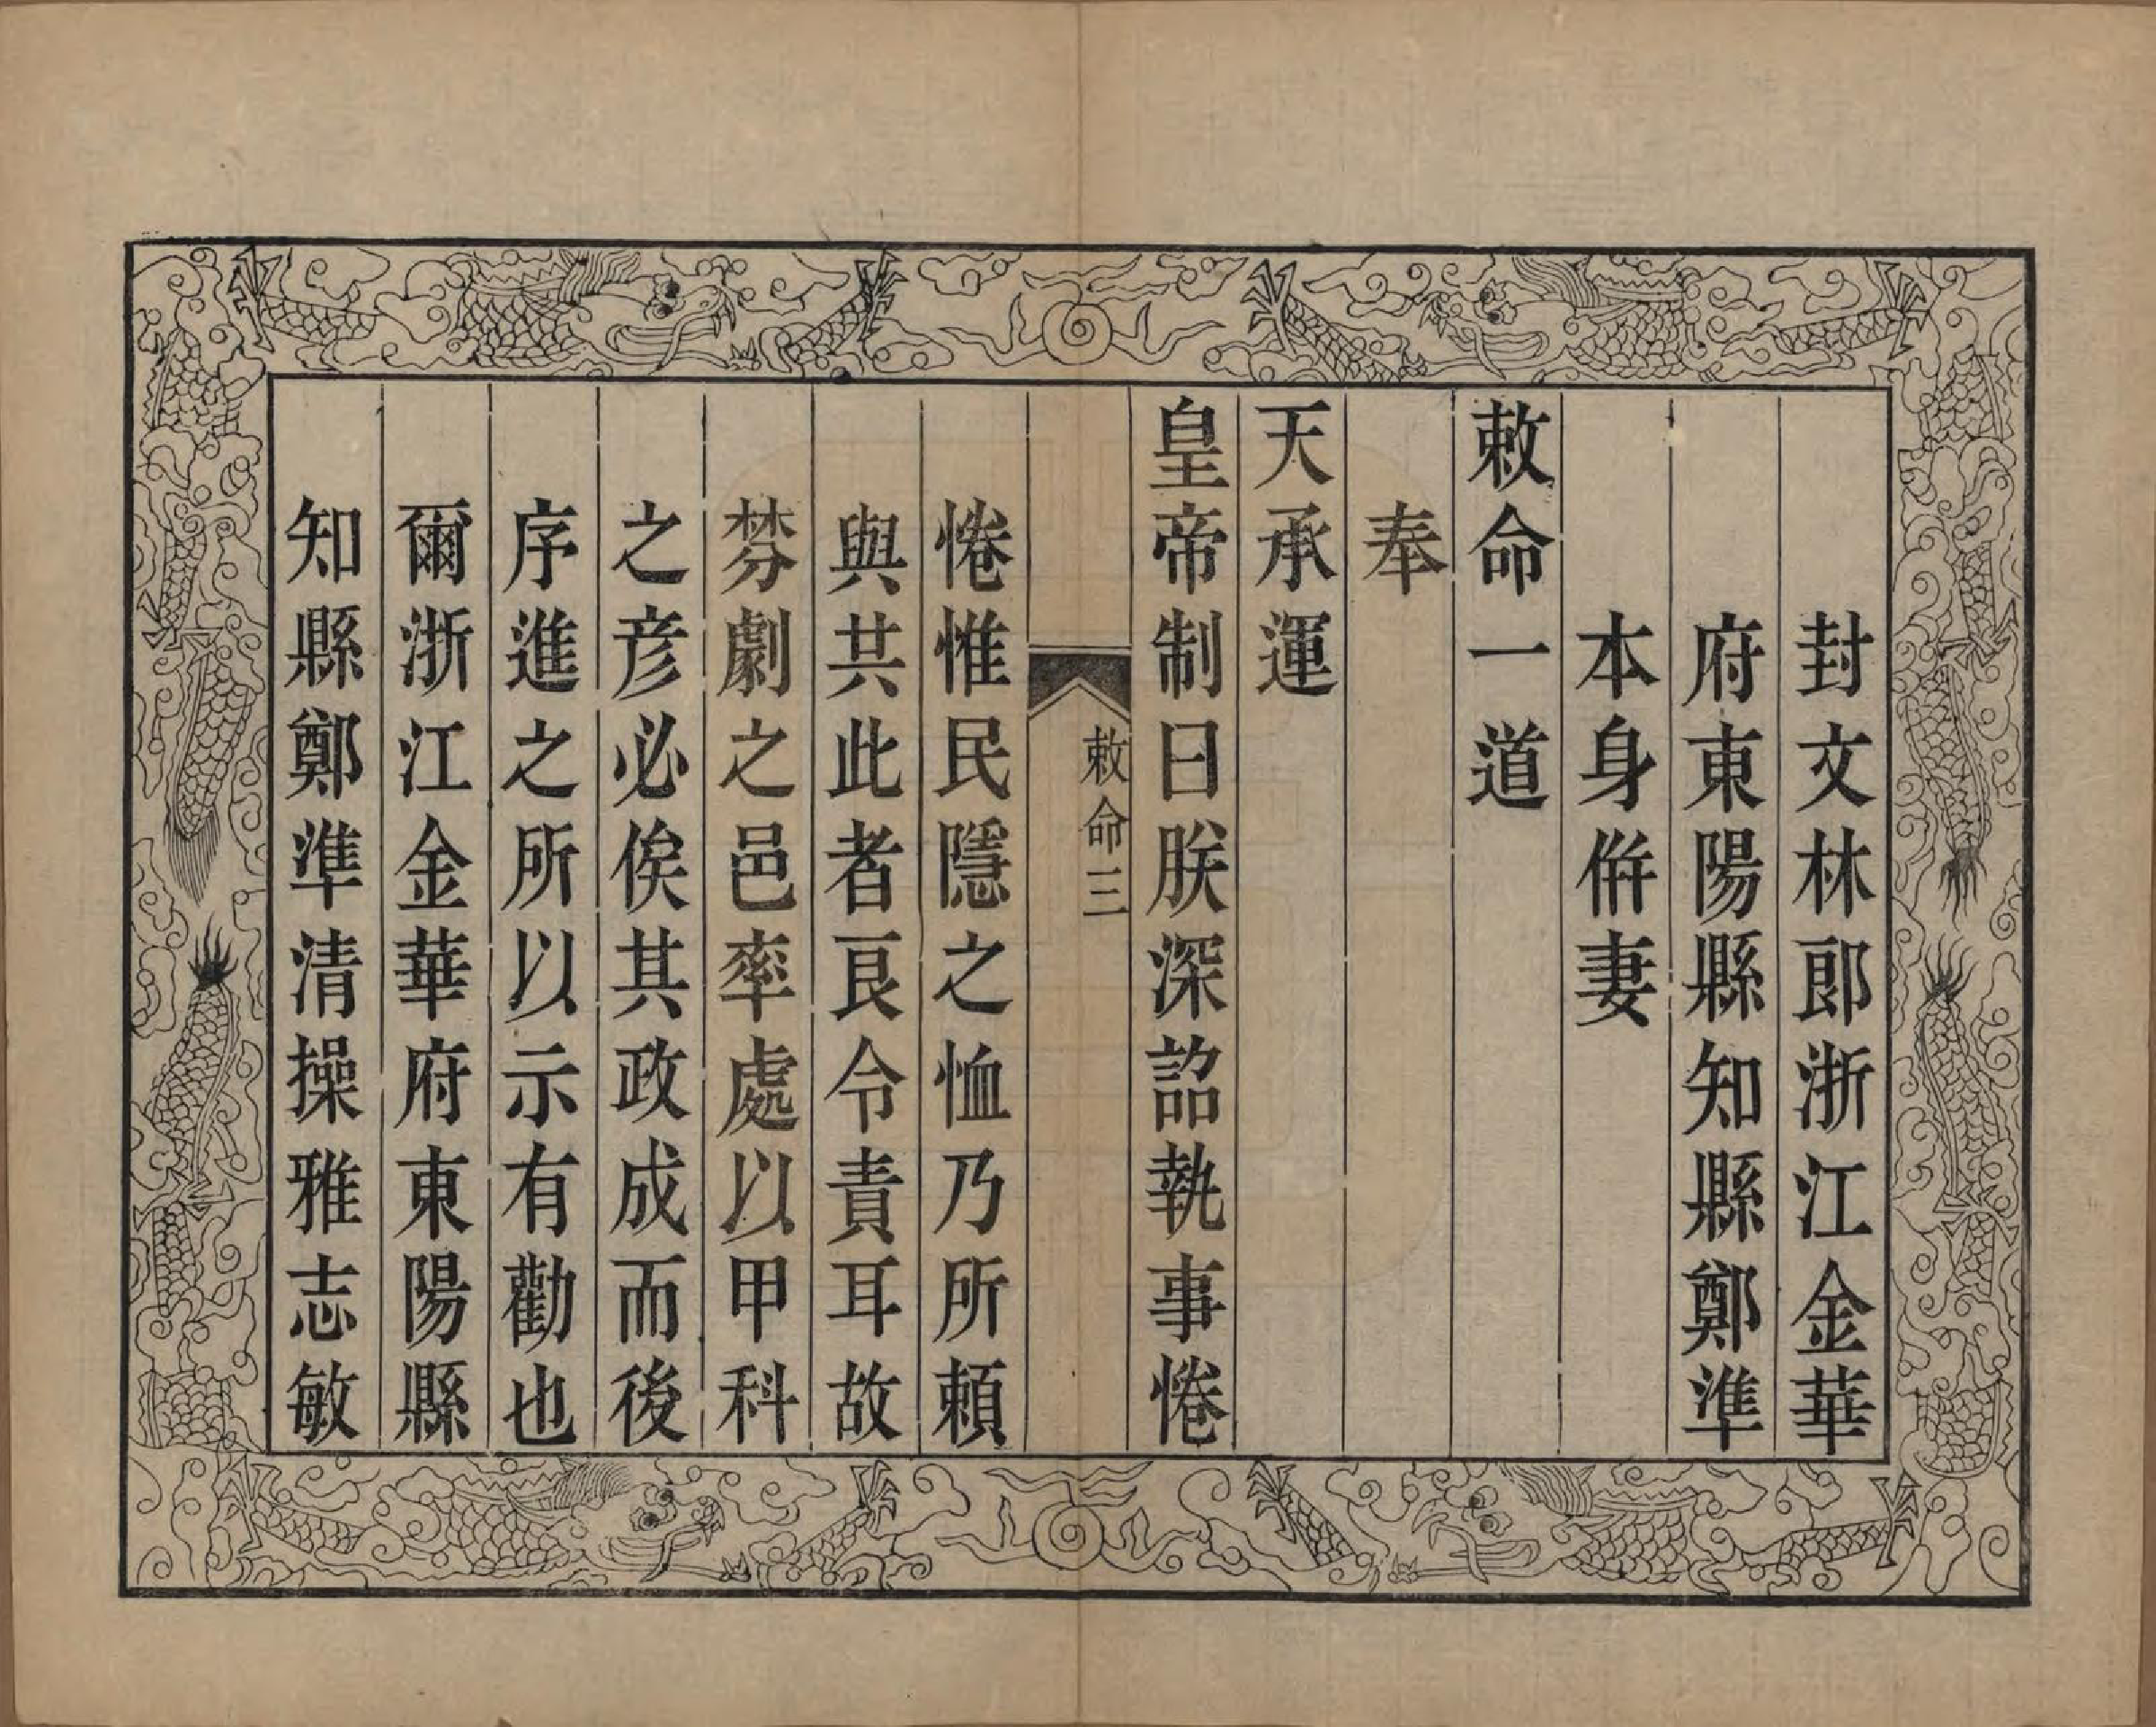 封文林郎浙江金華
府東陽縣知縣鄭準
本身倂妻
敕命一道
奉
天承運
皇帝制曰朕深詔執事惓
敕命三
惓惟民隱之恤乃所賴
與共此者良令責耳故
棼劇之邑率處以甲科
之彦必俟其政成而後
序進之所以示有勸也
爾浙江金華府東陽縣
知縣鄭準清操雅志敏